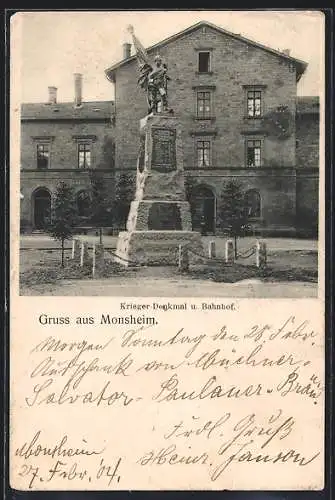 Krieger-Denkmal u. Bahnhof.
Gruss aus Monsheim.
Morgen Sonntag den 28 Febr.
Ausschank von Münchner-
Salvator- Paulaner-Bräu
Frdl. Gruß
Monsheim
27. Febr. 04.
Heinr. Janson